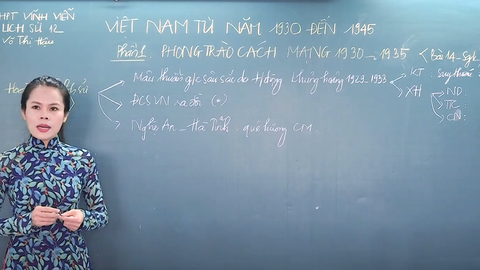 THPT VĨNH VIỄN
LỊCH SỬ 12
Võ Thị Hậu
VIỆT NAM TỪ NĂM 1930 ĐẾN 1945
Phần 1. PHONG TRÀO CÁCH MẠNG 1930 - 1935
Bài 14 - Sgk
Mâu thuẫn g/c sâu sắc do khủng hoảng 1929-1933
KT
Suy thoái
XH
ND:
TC
CN:
ĐCSVN ra đời (*)
Nghệ An - Hà Tĩnh, quê hương CM